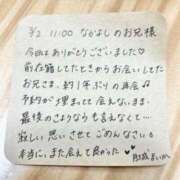 9/2 11:00 なかよしのお兄様
今日はありがとうございました♡
前在籍してたときからお会いしてた
お兄さま、約1年ぶりの再会♪
予約が埋まってて会えないまま、
最後のさよならも言えなくて…
寂しい思いさせてごめんなさい
本当に、また会えて良かった♡